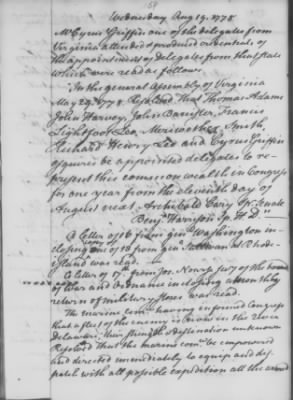 Wednesday Aug 19. 1778
Mr Cyrus Griffin one of the delegates from
Virginia attended & produced credentials of
the appointment of delegates from that state
which were read as follows
In the general assembly of Virginia
May 29. 1778. Resolved That Thomas Adams
John Harvey, John Banister, Francis
Lightfoot Lee, Meriwether Smith,
Richard Henry Lee and Cyrus Griffin
esquires be appointed delegates to re-
present this common wealth in Congress
for one year from the eleventh day of
August next. Archibald Cary Sp. Senate
Benj Harrison Sp. H. D."
A letter of 16 from genl Washington in-
closing one of 13 from genl Sullivan at Rhode-
island was read.
A letter of 17 from Jos. Nourse of the board
of war and Ordnance inclosing a monthly
return of military stores was read.
The marine comee having informed Congress
that a fleet of the enemy is now in the river
Delaware, their strength & destination unknown
Resolved That the marine comee be empowered
and directed immediately to equip and dis-
patch with all possible expedition all the armed